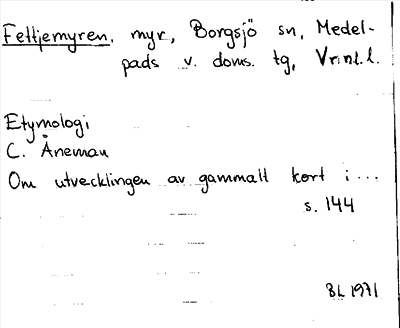 Feltjemyren, myr, Borgsjö sn, Medel-
pads v. doms. tg, Vrml.l.
Etymologi
C. Åneman
Om utvecklingen av gammalt kort i ...
s. 144
BL 1971